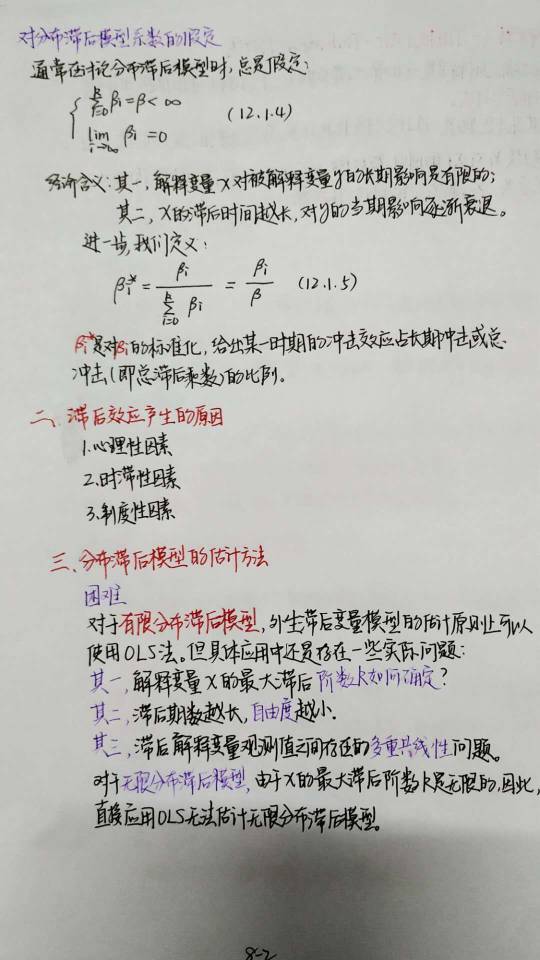 对分布滞后模型系数的假定
通常在讨论分布滞后模型时,总是假定:
{ k∑i=0 βi=β<∞
lim i→∞ βi=0 (12.1.4)
经济含义:其一,解释变量X对被解释变量Y的长期影响是有限的;
其二,X的滞后时间越长,对Y的当期影响逐渐衰退。
进一步,我们定义:
βi* = βi / k∑i=0 βi = βi / β (12.1.5)
βi*是对βi的标准化,给出某一时期的冲击效应占长期冲击或总
冲击(即总滞后乘数)的比例。
二、滞后效应产生的原因
1.心理性因素
2.时滞性因素
3.制度性因素
三、分布滞后模型的估计方法
困难
对于有限分布滞后模型,外生滞后变量模型的估计原则上可以
使用OLS法。但具体应用中还是存在一些实际问题:
其一,解释变量X的最大滞后阶数k如何确定?
其二,滞后期数越长,自由度越小.
其三,滞后解释变量观测值之间存在的多重共线性问题。
对于无限分布滞后模型,由于X的最大滞后阶数k是无限的,因此,
直接应用OLS无法估计无限分布滞后模型。
8-2